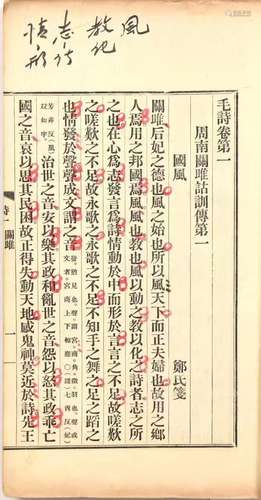 風
教化
志詩
情形
毛詩卷第一
周南關雎詁訓傳第一
國風　鄭氏箋
關雎后妃之德也風之始也所以風天下而正夫婦也故用之鄉
人焉用之邦國焉風風也教也風以動之教以化之詩者志之所
之也在心為志發言為詩情動於中而形於言言之不足故嗟歎
之嗟歎之不足故永歌之永歌之不足不知手之舞之足之蹈之
也情發於聲聲成文謂之音發猶見也聲謂宮商角徵羽也聲成文者宮商上下相應
治世之音安以樂其政和亂世之音怨以怒其政乖亡
國之音哀以思其民困故正得失動天地感鬼神莫近於詩先王
詩一　關雎　一